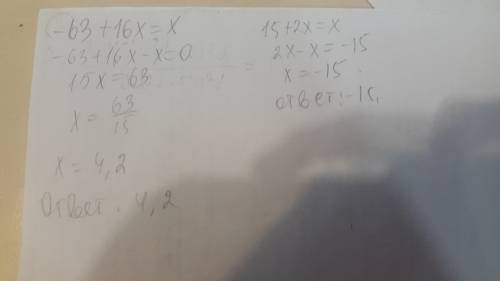 -63+16x=x
-63+16x-x=0
15x=63
x=63/15
x=4,2
Ответ: 4,2
15+2x=x
2x-x=-15
x=-15
ответ:-15.